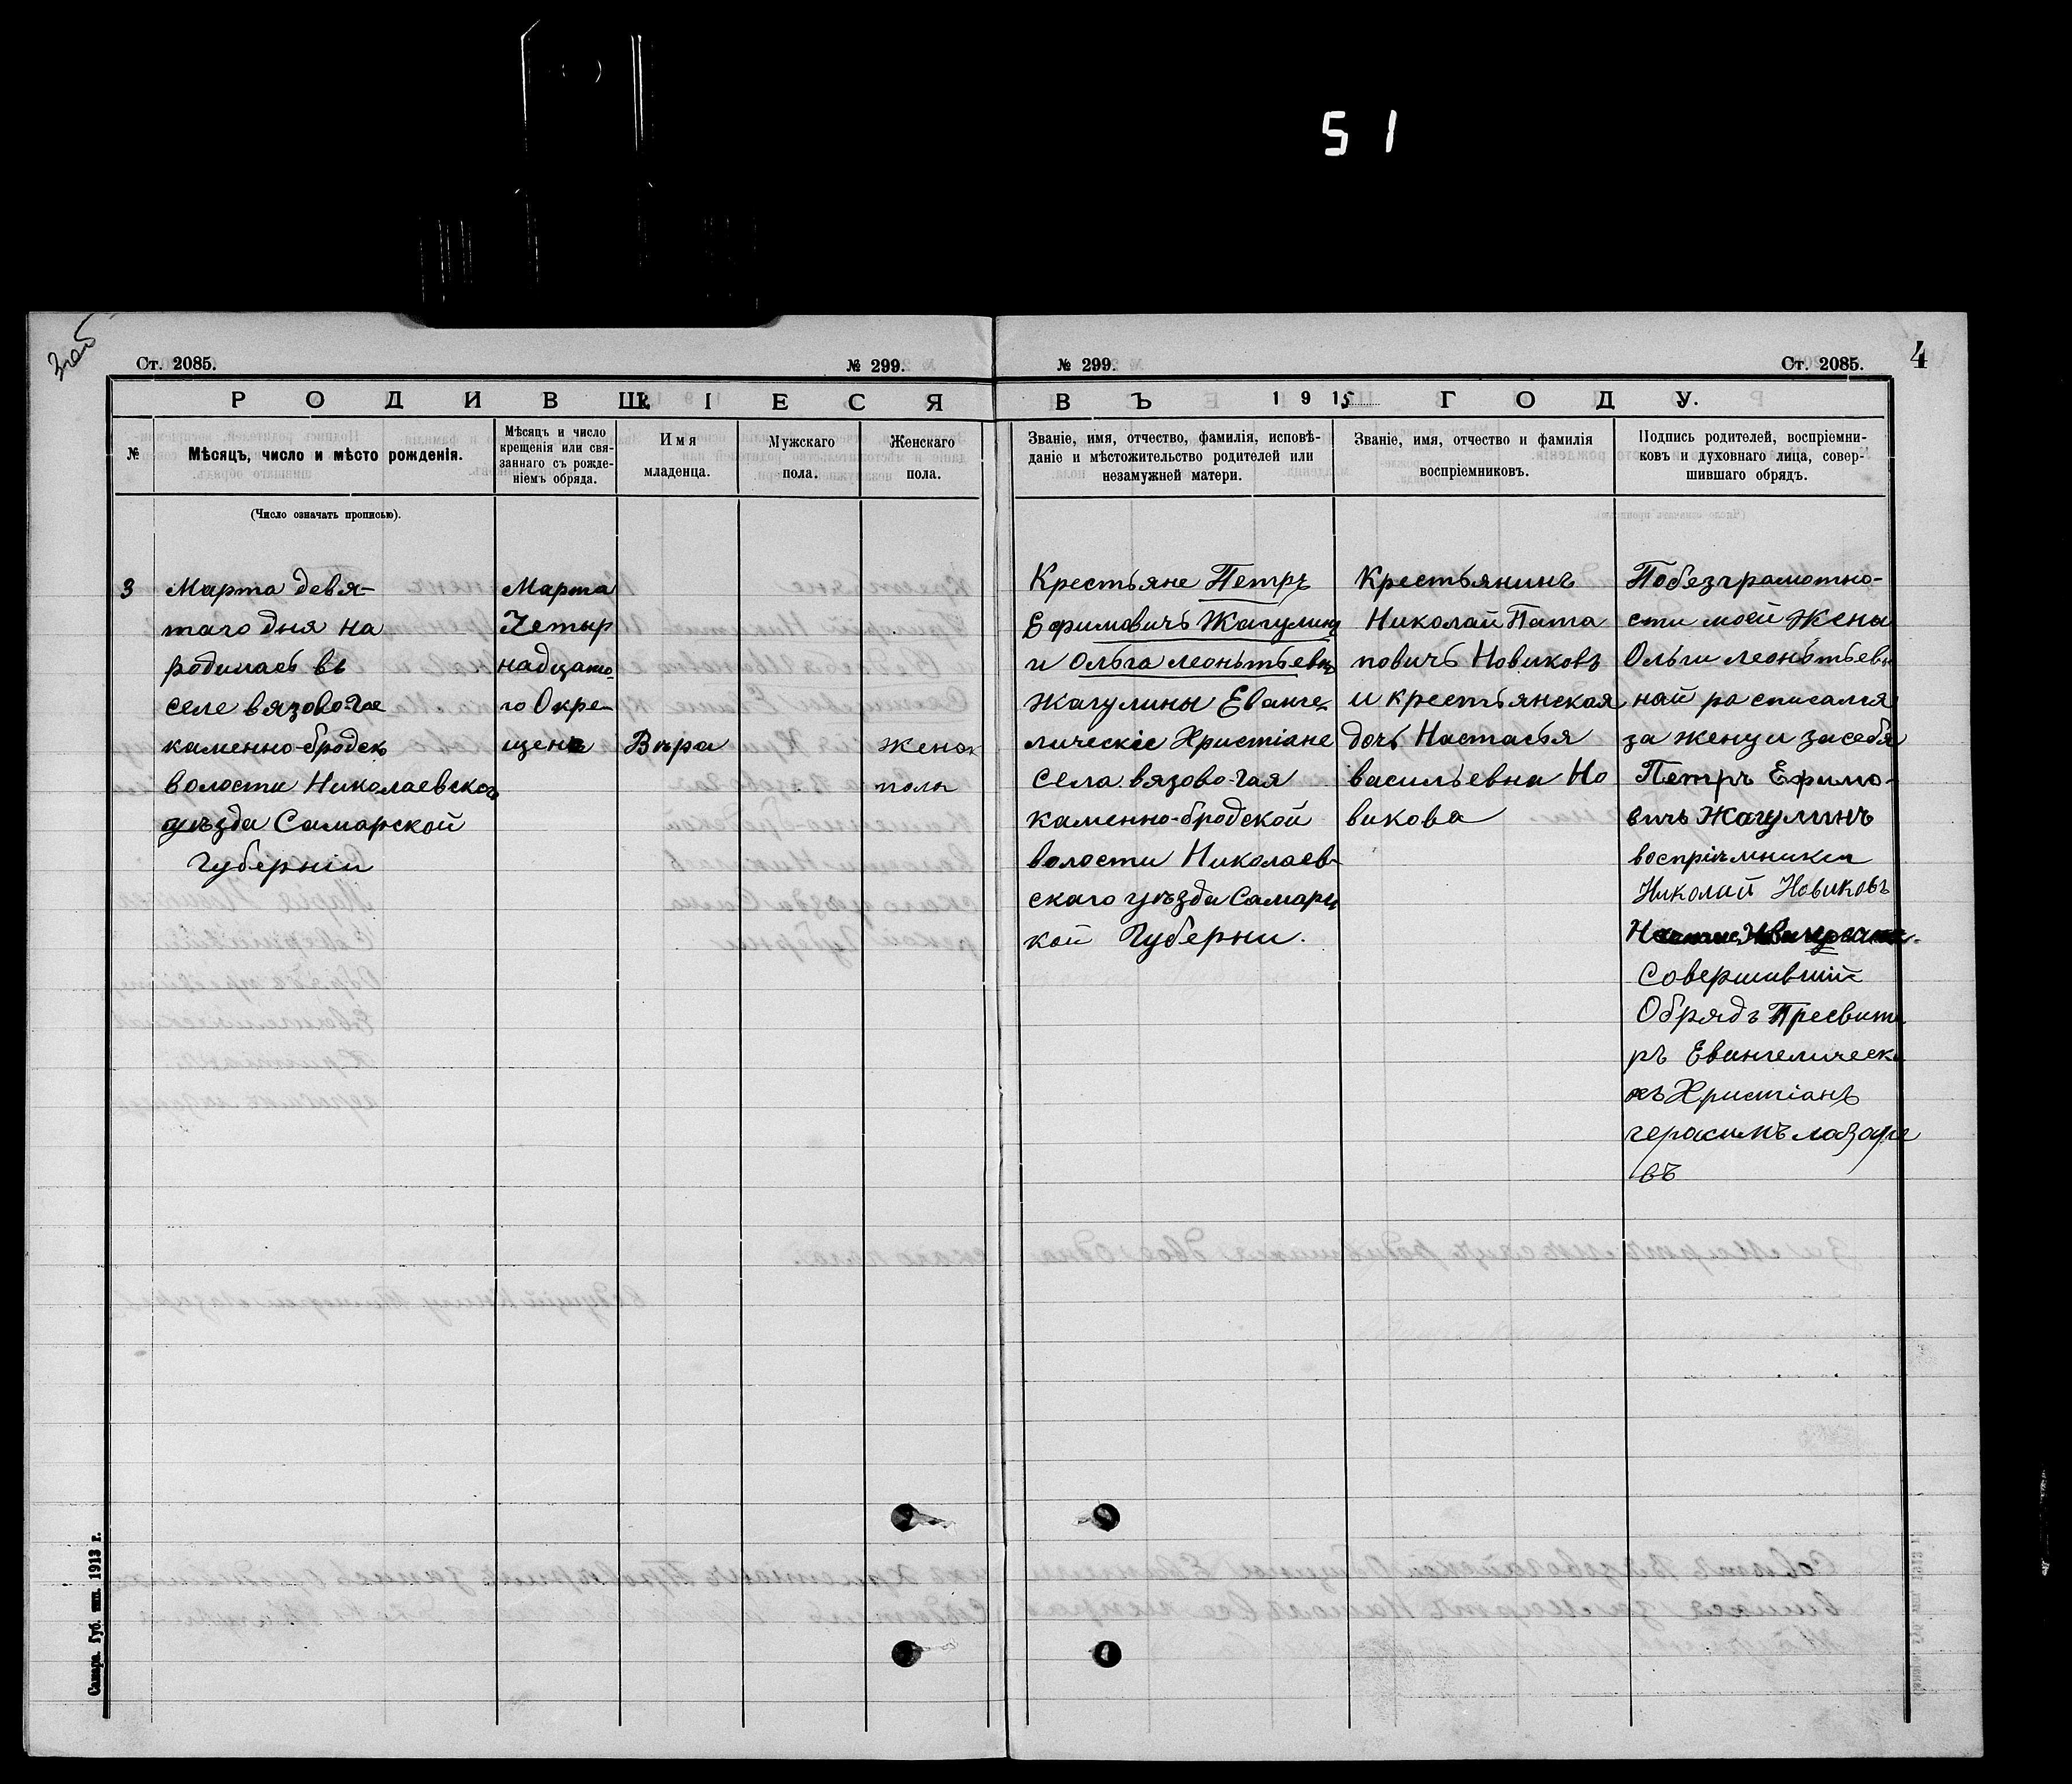 51
Ст. 2085.
№ 299.
№ 299.
Ст. 2085.
4
РОДИВШІЕСЯ
ВЪ 1915 ГОДУ.
№
Мѣсяцъ, число и мѣсто рожденія.
Мѣсяцъ и число
крещенія или свя-
заннаго съ рожде-
ніемъ обряда.
Имя
младенца.
Мужскаго
пола.
Женскаго
пола.
Званіе, имя, отчество, фамилія, исповѣ-
даніе и мѣстожительство родителей или
незамужней матери.
Званіе, имя, отчество и фамилія
воспріемниковъ.
Подпись родителей, воспріемни-
ковъ и духовнаго лица, совер-
шившаго обрядъ.
(Число означать прописью).
3
Марта девя-
таго дня на
родилась въ
селе вязово-гае
каменно-бродск
волости Николаевскаго
уѣзда Самарской
Губерніи
Марта
Четыр
надцато-
го Окре-
щена
Вѣра
женск
пола
Крестьяне Петръ
Ефимовичъ Жагулинъ
и Ольга леонътьевна
Жагулины Еванге-
лическіе Христіане
Села вязово-гая
каменно-бродской
волости Николаев-
скаго уѣзда Самарс
кой Губерни.
Крестьянинъ
Николай Пата
повичъ Новиковъ
и крестьянская
дочь Настасья
васильевна Но
викова
Побезграмотно-
сти моей Жены
Ольги леонътьев
ной ра списался
за жену и за себя
Петръ Ефимо-
вичъ Жагулинъ
воспріѣмники
Николай Новиковъ
Совершивший
Обрядъ Пресвите
ръ Евангелическ
хъ Христіанъ
герасимъ лазаре
въ
Самара. Губ. тип. 1913 г.